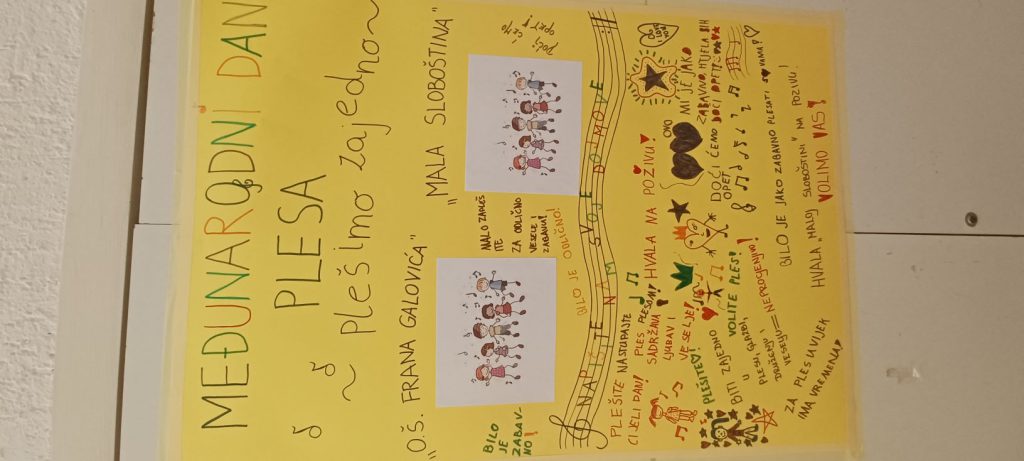 MEĐUNARODNI DAN
PLESA
~ Plešimo zajedno ~
"O.Š. FRANA GALOVIĆA"
"MALA SLOBOŠTINA"
BILO
JE
ZABAV-
NO!
MALO ZAPLEŠ
ITE
ZA ODLIČNO
VESELE I
ZABAVU!
DOĆI
ĆEMO
OPET!
BILO JE ODLIČNO!
NAPIŠITE NAM SVOJE DOJMOVE
PLEŠITE NASTUPAJTE
CIJELI DAN!
PLES PLEŠIMA!
SADRŽAJNA
LJUBAV I
VESELJE!
HVALA NA POZIVU!
PLEŠITE!
BITI ZAJEDNO
U GLAZBI,
PLESU,
DRUŽENJU I
VESELJU=NEPROCJENJIVO!
VOLITE PLES!
DOĆI ĆEMO
OPET
MI JE JAKO
ZABAVNO, HTJELA BIH
DOĆI OPET
BILO JE JAKO ZABAVNO PLESATI S VAMA!
ZA PLES UVIJEK
IMA VREMENA!
HVALA "MALOJ SLOBOŠTINI" NA POZIVU!
VOLIMO VAS!